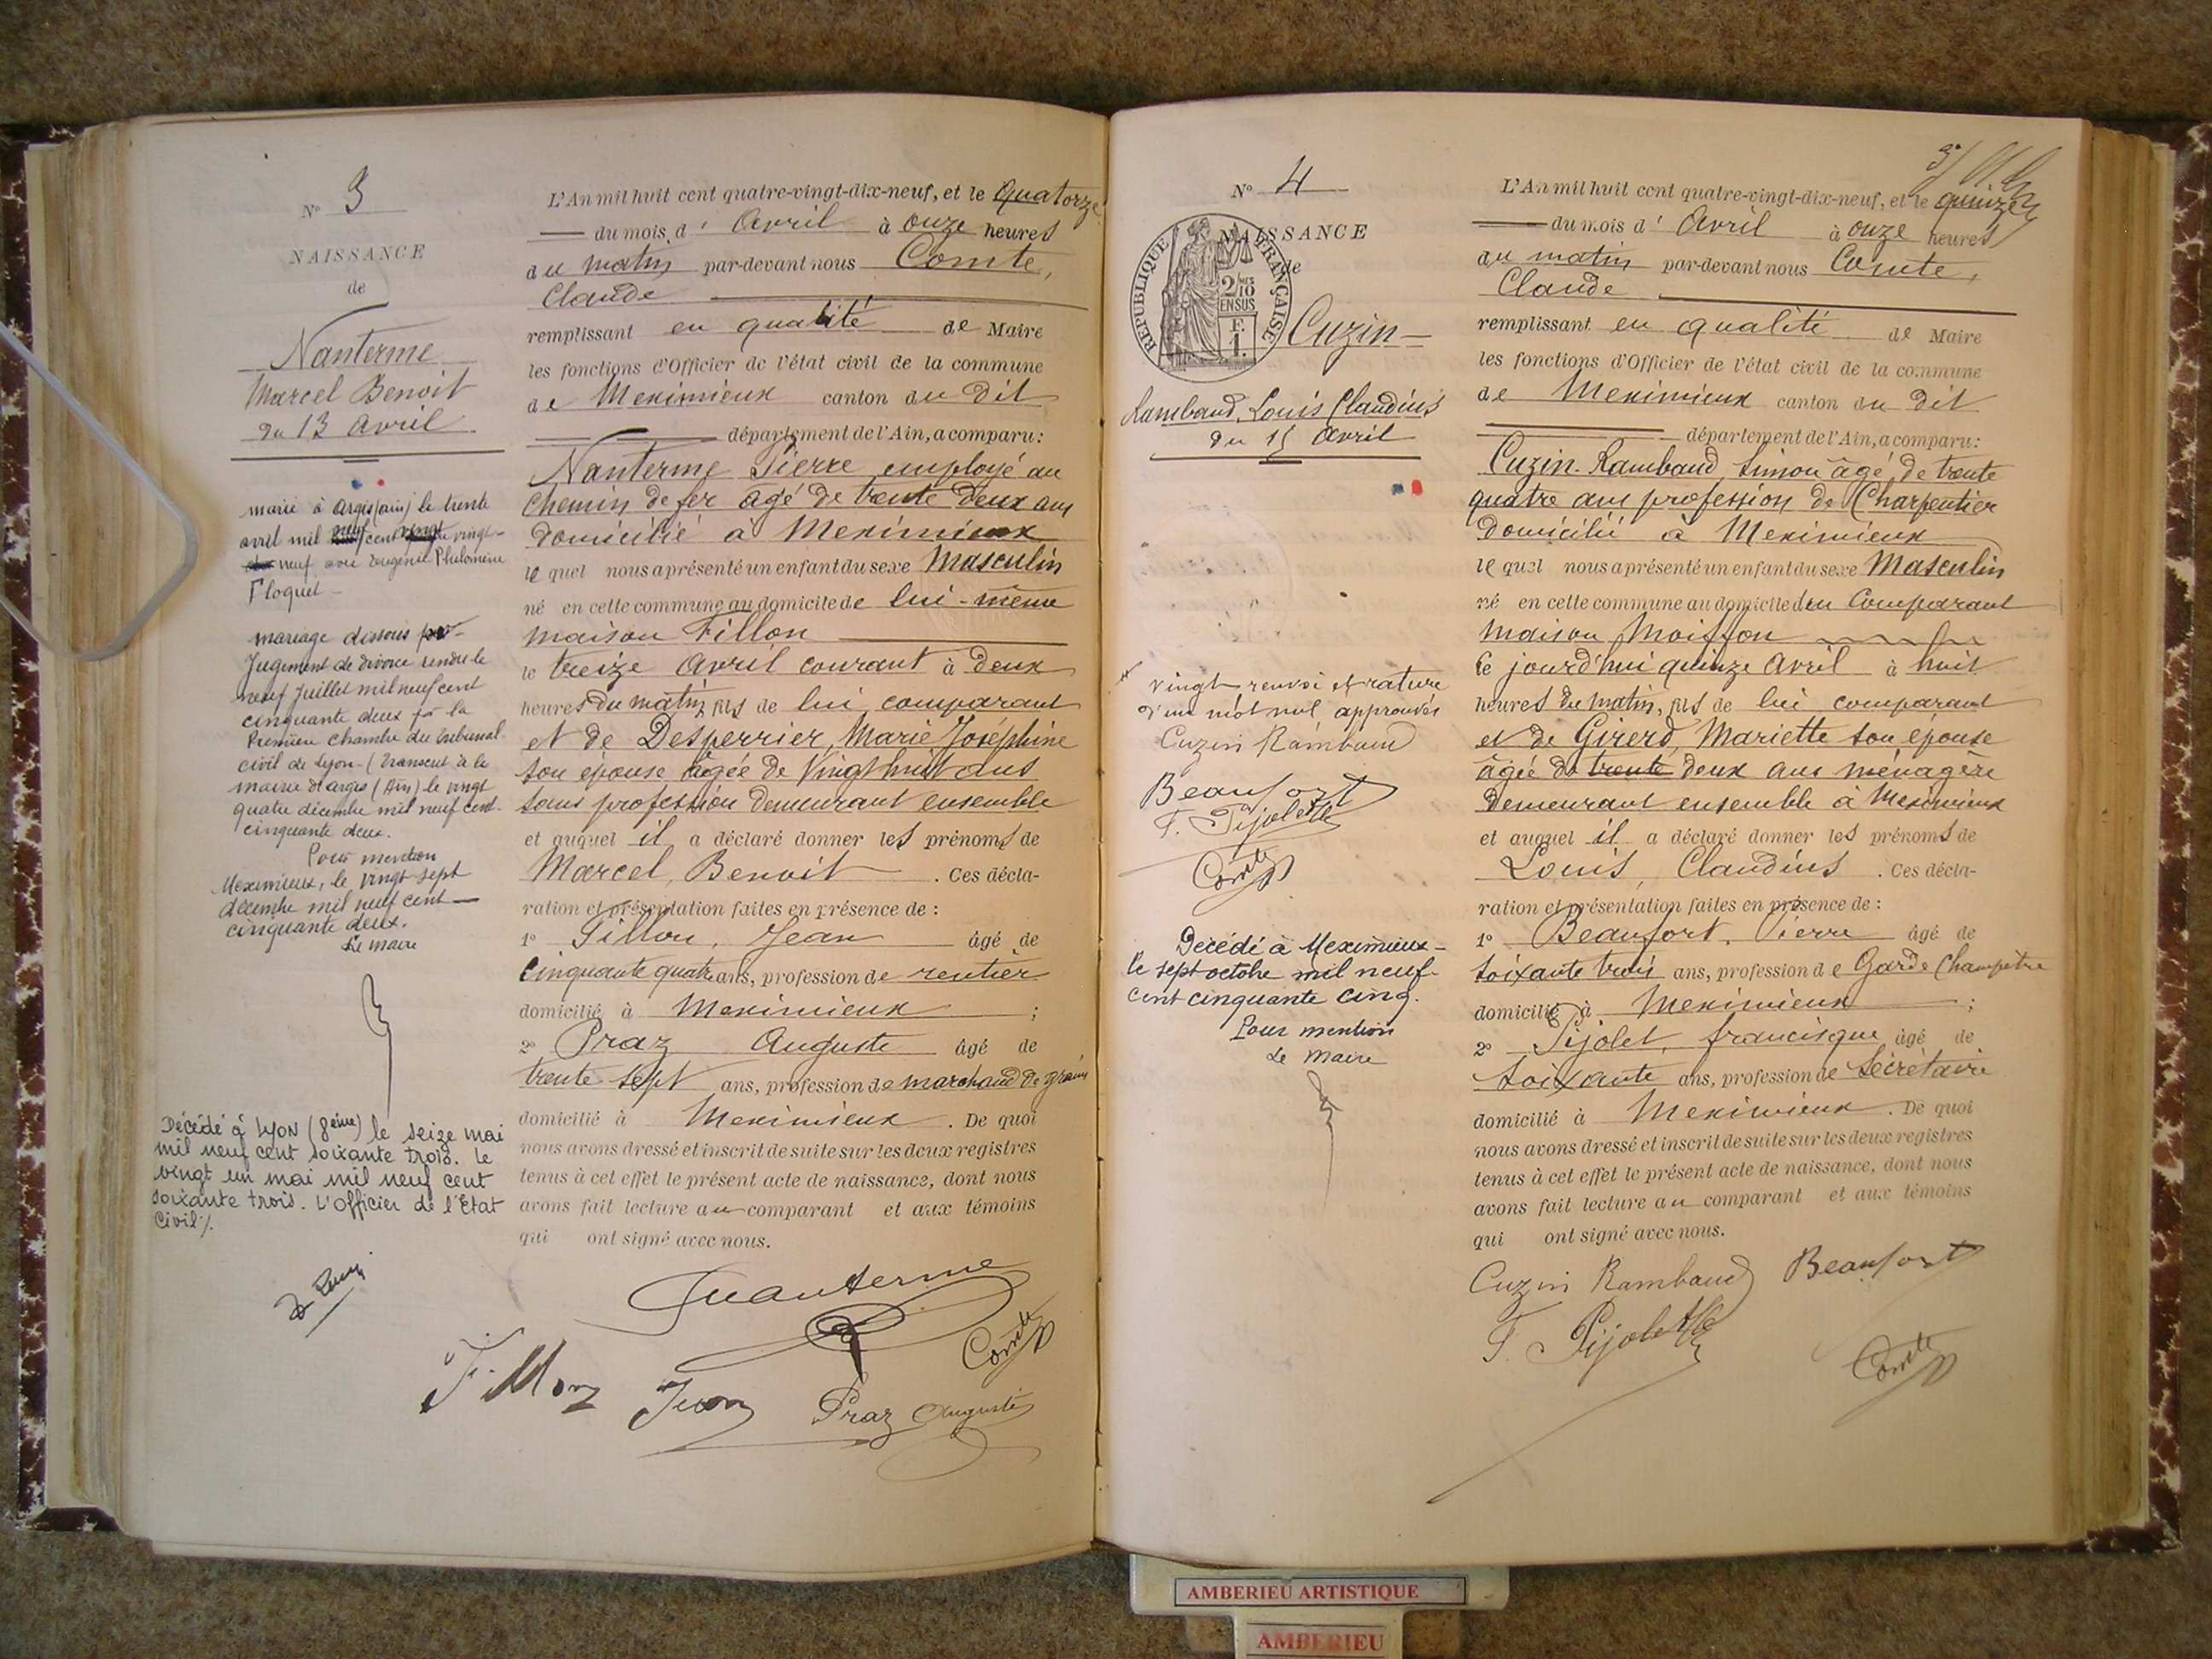 N° 3
NAISSANCE
de
Nanterme
Marcel Benoit
du 13 Avril
marié à Argis (ain) le trente
avril mil neuf cent vingt-
neuf avec Eugénie Philomène
Floquet -
mariage dissous par
Jugement de divorce rendu le
neuf Juillet mil neuf cent
cinquante deux par la
Première chambre du tribunal
civil de Lyon - (transcrit à la
mairie d'Argis (Ain) le vingt
quatre décembre mil neuf cent
cinquante deux.
Pour mention
Meximieux, le vingt sept
décembre mil neuf cent
cinquante deux.
Le maire
Décédé à LYON (8ème) le seize mai
mil neuf cent soixante trois. Le
vingt un mai mil neuf cent
soixante trois. L'officier de l'Etat
Civil ./.
L'An mil huit cent quatre-vingt-dix-neuf, et le quatorze
du mois d' Avril à onze heures
du matin par-devant nous Comte,
Claude
remplissant en qualité de Maire
les fonctions d'Officier de l'état civil de la commune
de Meximieux canton du dit
département de l'Ain, a comparu:
Nanterme Pierre employé au
chemin de fer âgé de trente deux ans
domicilié à Meximieux
le quel nous a présenté un enfant du sexe Masculin
né en cette commune au domicile de lui-même
maison Fillon
le treize Avril courant à deux
heures du matin, fils de lui comparant
et de Desperrier, Marie Joséphine
son épouse âgée de Vingt huit ans
sans profession demeurant ensemble
et auquel il a déclaré donner les prénoms de
Marcel, Benoit . Ces décla-
ration et présentation faites en présence de :
1° Fillon, Jean âgé de
cinquante quatre ans, profession de rentier
domicilié à Meximieux ;
2° Praz Auguste âgé de
trente sept ans, profession de marchand de grains
domicilié à Meximieux . De quoi
nous avons dressé et inscrit de suite sur les deux registres
tenus à cet effet le présent acte de naissance, dont nous
avons fait lecture au comparant et aux témoins
qui ont signé avec nous.
Nanterme
Comte
Fillon Jean Praz Auguste
N° 4
NAISSANCE
de
REPUBLIQUE FRANÇAISE
2/10
EN SUS
F.
1.
Cuzin -
Rambaud, Louis Claudius
du 15 Avril
vingt renvoi et rature
d'un mot nul, approuvés
Cuzin Rambaud
Beaufort
F. Pijolet
Comte
Décédé à Meximieux -
le sept octobre mil neuf
cent cinquante cinq.
Pour mention
Le Maire
L'An mil huit cent quatre-vingt-dix-neuf, et le quinze
du mois d' Avril à onze heures
du matin par-devant nous Comte,
Claude
remplissant en qualité de Maire
les fonctions d'Officier de l'état civil de la commune
de Meximieux canton du dit
département de l'Ain, a comparu:
Cuzin-Rambaud, Simon âgé de trente
quatre ans profession de Charpentier
domicilié à Meximieux
le quel nous a présenté un enfant du sexe Masculin
né en cette commune au domicile du Comparant
maison Moiffon
le jourd'hui quinze Avril à huit
heures du matin, fils de lui comparant
et de Girerd, Mariette son épouse
âgée de trente deux ans ménagère
demeurant ensemble à Meximieux
et auquel il a déclaré donner les prénoms de
Louis, Claudius . Ces décla-
ration et présentation faites en présence de :
1° Beaufort, Pierre âgé de
soixante trois ans, profession de Garde Champêtre
domicilié à Meximieux ;
2° Pijolet, francisque âgé de
soixante ans, profession de Secrétaire
domicilié à Meximieux . De quoi
nous avons dressé et inscrit de suite sur les deux registres
tenus à cet effet le présent acte de naissance, dont nous
avons fait lecture au comparant et aux témoins
qui ont signé avec nous.
Cuzin Rambaud Beaufort
F. Pijolet
Comte
AMBERIEU ARTISTIQUE
AMBERIEU